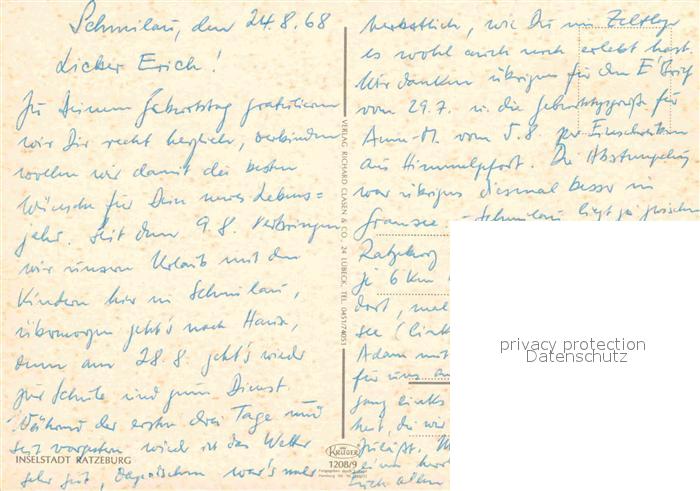 Schmilau, den 24.8.68
Lieber Erich!
Zu Deinem Geburtstag gratulieren
wir Dir recht herzlich, verbinden
wollen wir damit die besten
Wünsche für Dein neues Lebens=
jahr. Seit dem 9.8. verbringen
wir unseren Urlaub mit den
Kindern hier in Schmilau,
übermorgen geht's nach Haus,
denn am 28.8. geht's wieder
zur Schule und zum Dienst.
Während der ersten drei Tage und
seit vorgestern wieder ist das Wetter
sehr gut, dazwischen war's mehr
INSELSTADT RATZEBURG
VERLAG RICHARD CLASEN & CO., 24 LÜBECK, TEL. 0451/74051
KRÜGER
1208/9
herbstlich, wie Du im Zeltlager
es wohl auch noch erlebt hast.
Wir danken übrigens für den E'Brief
vom 29.7. u. die Geburtstagsgrüße für
Anne-M. vom 5.8 per Einschreiben
aus Himmelpfort. Die Abstempelung
war übrigens diesmal besser in
Gransee. - Schmilau liegt ja zwischen
Ratzeburg
je 6 km
dort,
see (links
Adam mit
für uns
gang links
zuläßt.
privacy protection
Datenschutz